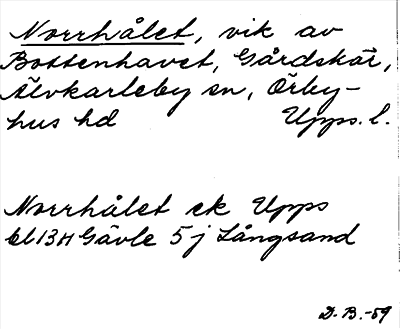 Norrhålet, vik av
Bottenhavet, Gårdskär,
Älvkarleby sn, Örby-
hus hd Upps. l.
Norrhålet ek Upps
bl 13H Gävle 5j Långsand
D.B.-59